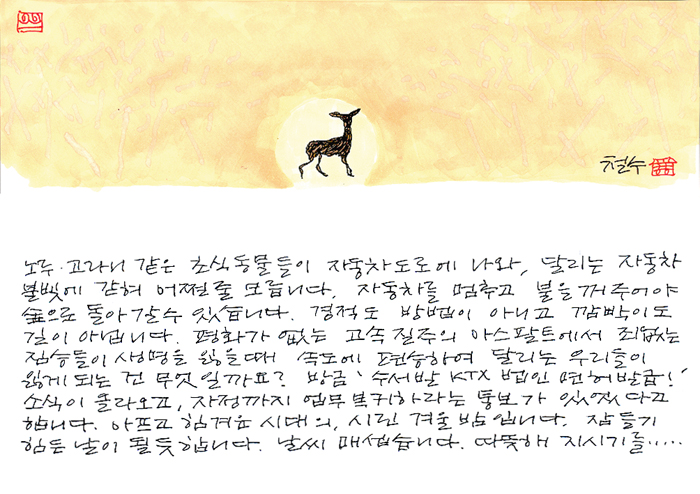 철수
노루·고라니 같은 초식동물들이 자동차도로에 나와, 달리는 자동차
불빛에 갇혀 어쩔줄 모릅니다. 자동차를 멈추고 불을 꺼주어야
숲으로 돌아갈수 있습니다. 경적도 방법이 아니고 깜빡이도
길이 아닙니다. 평화가 없는 고속질주의 아스팔트에서 죄없는
짐승들이 생명을 잃을때 속도에 편승하여 달리는 우리들이
잃게 되는 건 무엇일까요? 방금 '수서발 KTX 법인 면허발급!'
소식이 올라오고, 자정까지 업무복귀하라는 통보가 있었다고
합니다. 아프고 힘겨운 시대의, 시린 겨울밤입니다. 잠들기
힘든 날이 될듯 합니다. 날씨 매섭습니다. 따뜻해 지시기를.....